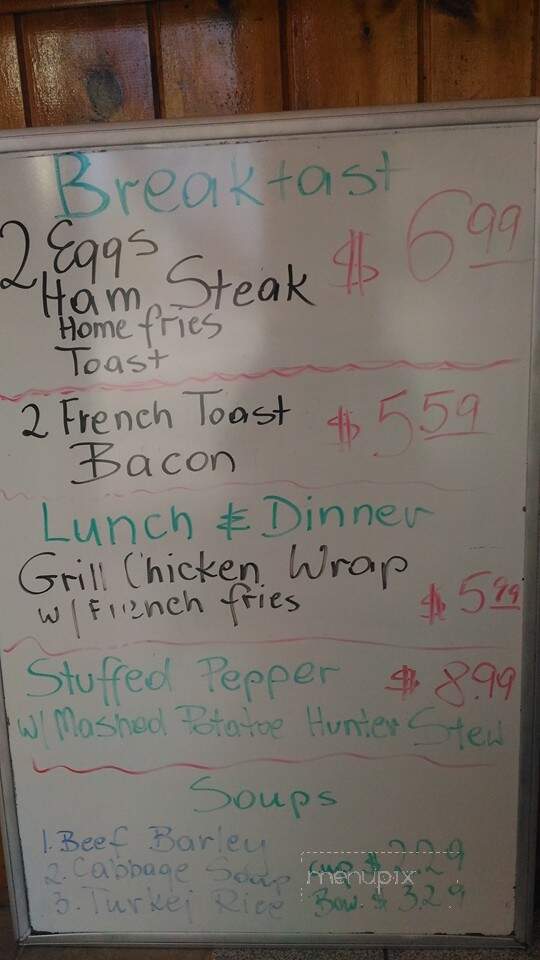 Breakfast
2 Eggs $ 6.99
Ham Steak
Home fries
Toast
2 French Toast $ 5.59
Bacon
Lunch & Dinner
Grill Chicken Wrap
w/ French fries $ 5.99
Stuffed Pepper $ 8.99
w/ Mashed Potatoe Hunter Stew
Soups
1. Beef Barley
2. Cabbage Soup cup $ 2.29
3. Turkey Rice Bow. $ 3.29
menupix